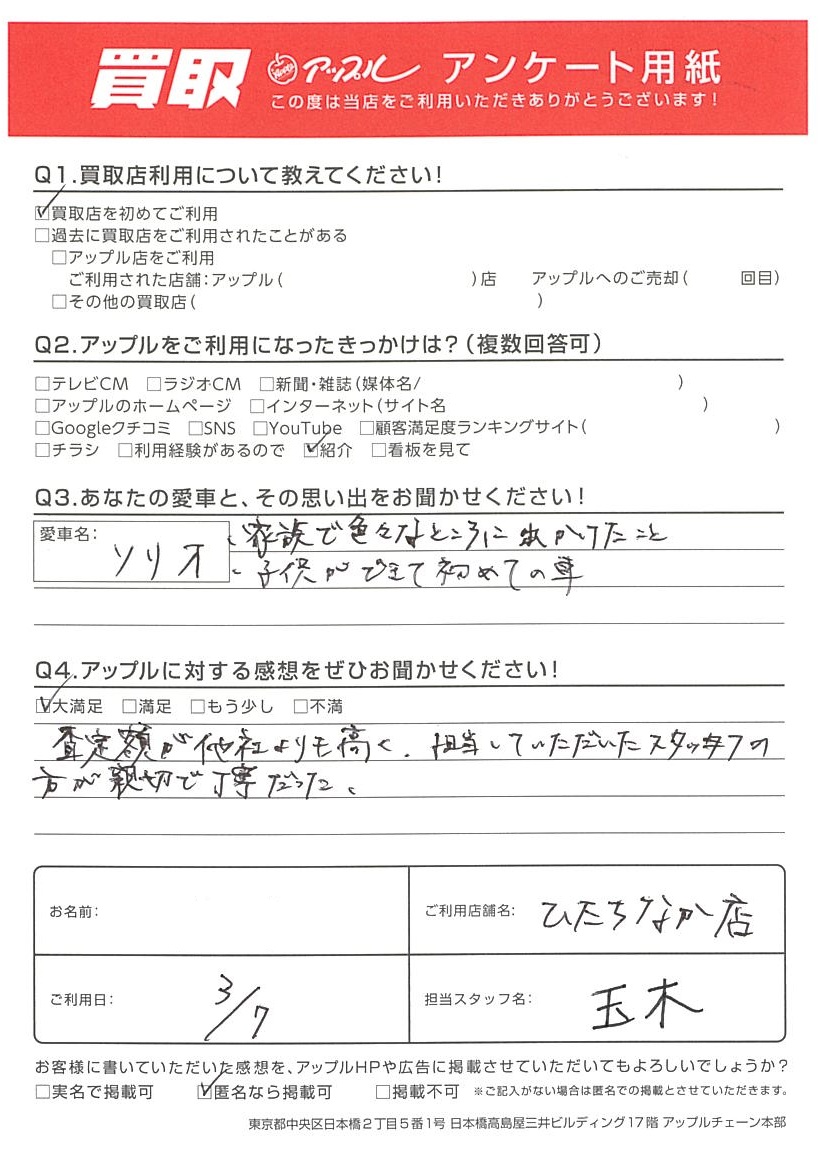 買取 Apple アップル アンケート用紙
この度は当店をご利用いただきありがとうございます!
Q1.買取店利用について教えてください!
☑買取店を初めてご利用
□過去に買取店をご利用されたことがある
□アップル店をご利用
ご利用された店舗:アップル( )店 アップルへのご売却( 回目)
□その他の買取店( )
Q2.アップルをご利用になったきっかけは?(複数回答可)
□テレビCM □ラジオCM □新聞・雑誌(媒体名/ )
□アップルのホームページ □インターネット(サイト名 )
□Googleクチコミ □SNS □YouTube □顧客満足度ランキングサイト( )
□チラシ □利用経験があるので ☑紹介 □看板を見て
Q3.あなたの愛車と、その思い出をお聞かせください!
愛車名: ソリオ 、家族で色々なところに出かけたこと
、子供ができて初めての車
Q4.アップルに対する感想をぜひお聞かせください!
☑大満足 □満足 □もう少し □不満
査定額が他社よりも高く、担当していただいたスタッフの
方が親切で丁寧だった。
お名前: ご利用店舗名: ひたちなか店
ご利用日: 3/7 担当スタッフ名: 玉木
お客様に書いていただいた感想を、アップルHPや広告に掲載させていただいてもよろしいでしょうか?
□実名で掲載可 ☑匿名なら掲載可 □掲載不可 ※ご記入がない場合は匿名での掲載とさせていただきます。
東京都中央区日本橋2丁目5番1号 日本橋高島屋三井ビルディング17階 アップルチェーン本部